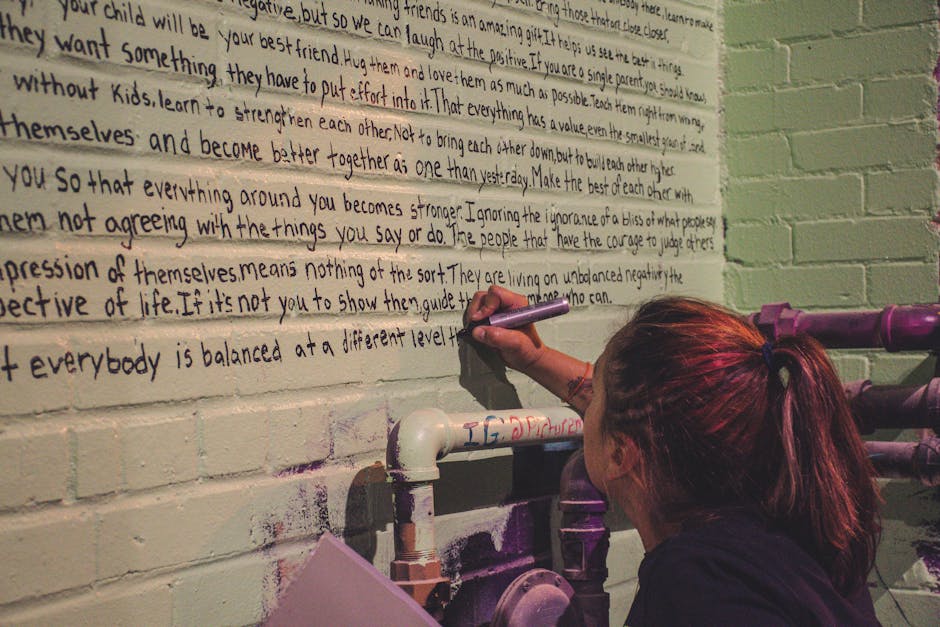 bring those that are close, closer.
making friends is an amazing gift. It helps us see the best in things.
your child will be negative, but so we can laugh at the positive. If you are a single parent, you should know
they want something, your best friend. Hug them and love them as much as possible. Teach them right from wrong,
without Kids, learn to they have to put effort into it. That everything has a value, even the smallest grain of
themselves and become strengthen each other. Not to bring each other down, but to build each other higher
you so that everything better together as one than yesterday. Make the best of each other with
them not agreeing with around you becomes stronger. Ignoring the ignorance of a bliss of what people say
the things you say or do. The people that have the courage to judge others
of themselves, means nothing of the sort. They are living on unbalanced negativity the
of life. If it's not you to show them, guide who can.
everybody is balanced at a different level
IG: